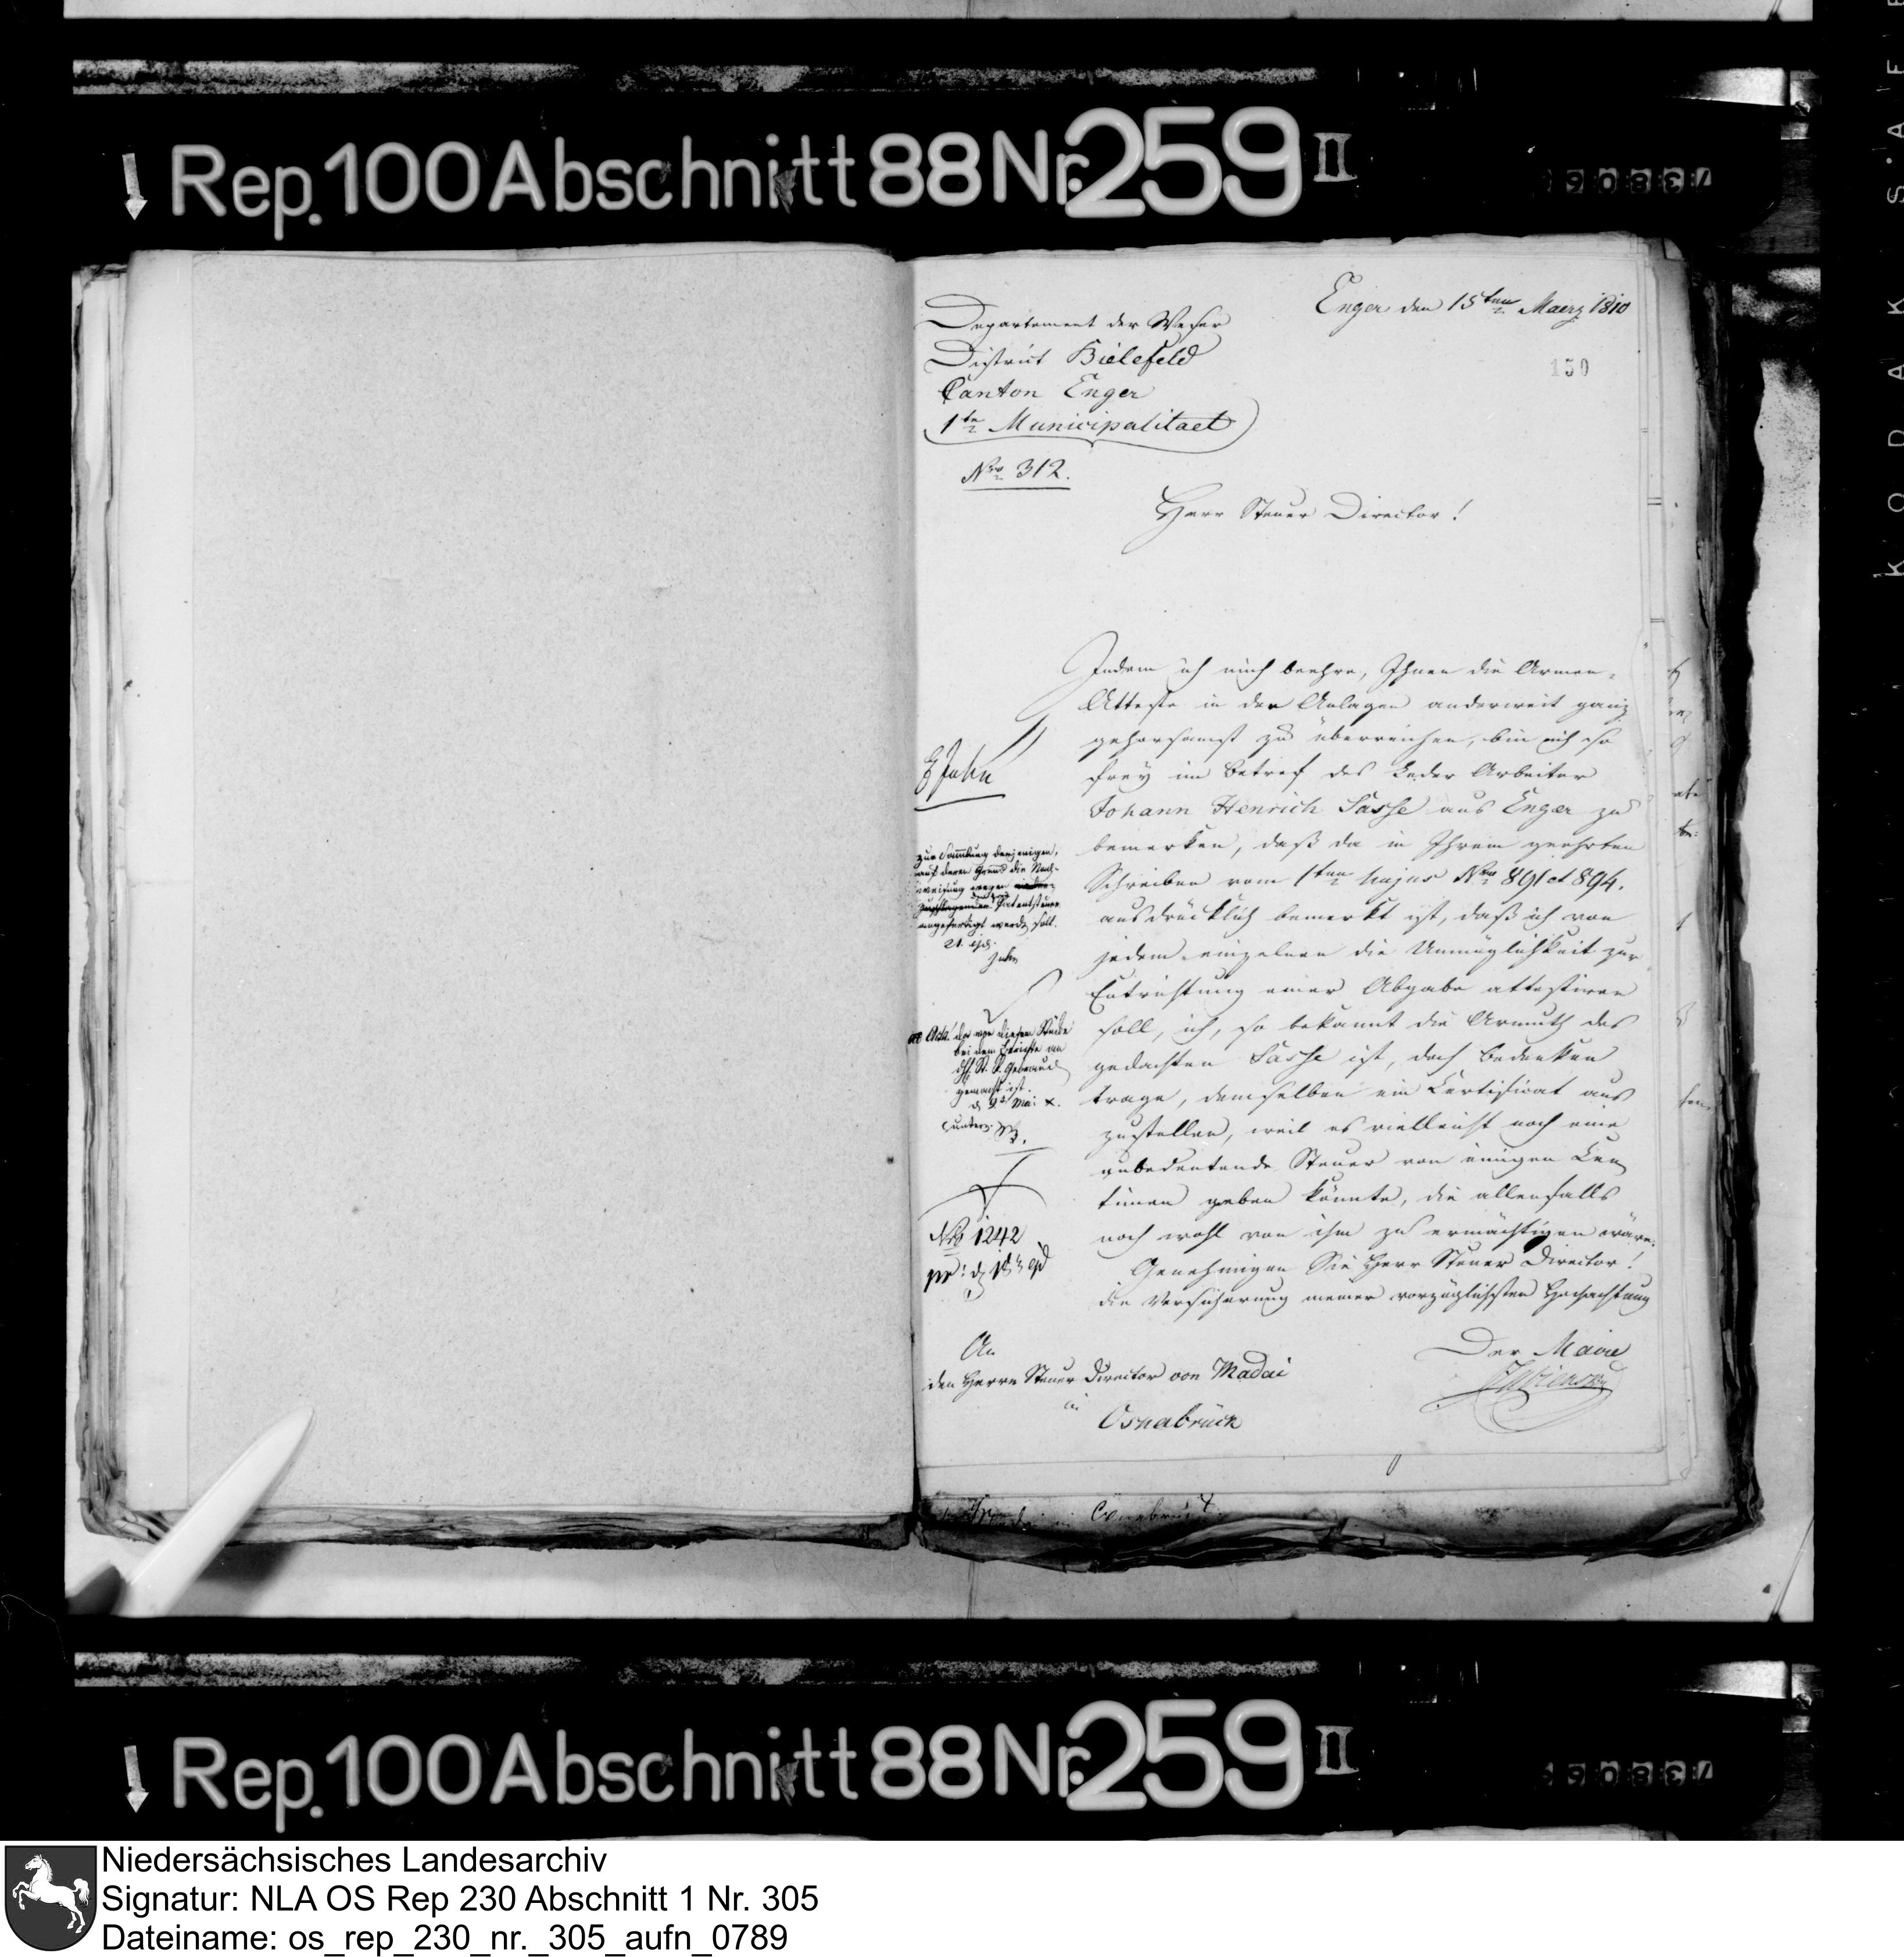 Rep. 100 Abschnitt 88 Nr. 259 II
Enger den 15ten Maerz 1810
Departement der Weser
District Bielefeld
Canton Enger
1te Municipalitaet
Nro 312.
130
Herr Steuer Director!
Indem ich mich beehre, Ihnen die Armen-
Atteste in der Anlagen anderweit ganz
gehorsamst zu überreichen, bin ich so
frey in Betref des Leder Arbeiter
Johann Henrich Sasse aus Enger zu
bemerken, daß da in Ihrem geehrten
Schreiben vom 1ten hujus Nro 891 et 894.
ausdrücklich bemerkt ist, daß ich von
jedem einzelnen die Unmöglichkeit zur
Entrichtung einer Abgabe attestiren
soll, ich, so bekannt die Armuth des
gedachten Sasse ist, doch Bedenken
trage, demselben ein Certificat aus
zustellen, weil es vielleicht noch eine
unbedeutende Steuer von einigen Cen
timen geben könnte, die allenfalls
noch wohl von ihm zu ermächtigen wäre.
Genehmigen Sie Herr Steuer Director!
die Versicherung meiner vorzüglichsten Hochachtung
Der Maire
zur Sammlung derjenigen,
auf deren Grund die Nach-
weisung wegen
Patentsteuer
angefertigt werden soll.
21. ej.
ad Acta! da von diesem Stücke
bei dem Berichte an
St. Gebrauch
gemacht ist.
d 9t Mai
Nro 1242
An
den Herrn Steuer Director von Madai
in
Osnabrück
Rep. 100 Abschnitt 88 Nr. 259 II
KODAK SAFE
Niedersächsisches Landesarchiv
Signatur: NLA OS Rep 230 Abschnitt 1 Nr. 305
Dateiname: os_rep_230_nr._305_aufn_0789